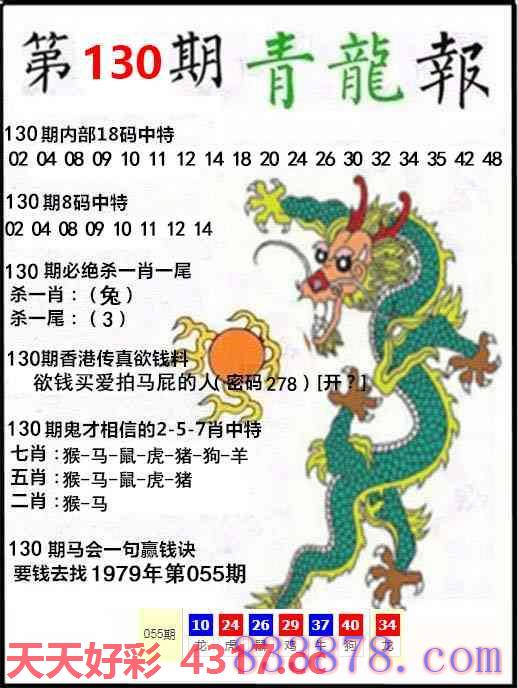 第130期青龍報
130期内部18码中特
02 04 08 09 10 11 12 14 18 20 24 26 30 32 34 35 42 48
130期8码中特
02 04 08 09 10 11 12 14
130期必绝杀一肖一尾
杀一肖：（兔）
杀一尾：（3）
130期香港传真欲钱料
欲钱买爱拍马屁的人（密码278）[开？]
130期鬼才相信的2-5-7肖中特
七肖：猴-马-鼠-虎-猪-狗-羊
五肖：猴-马-鼠-虎-猪
二肖：猴-马
130期马会一句赢钱诀
要钱去找1979年第055期
055期 10 24 26 29 37 40 34
龙 虎 鼠 鸡 牛 狗 龙
天天好彩 4317.cc